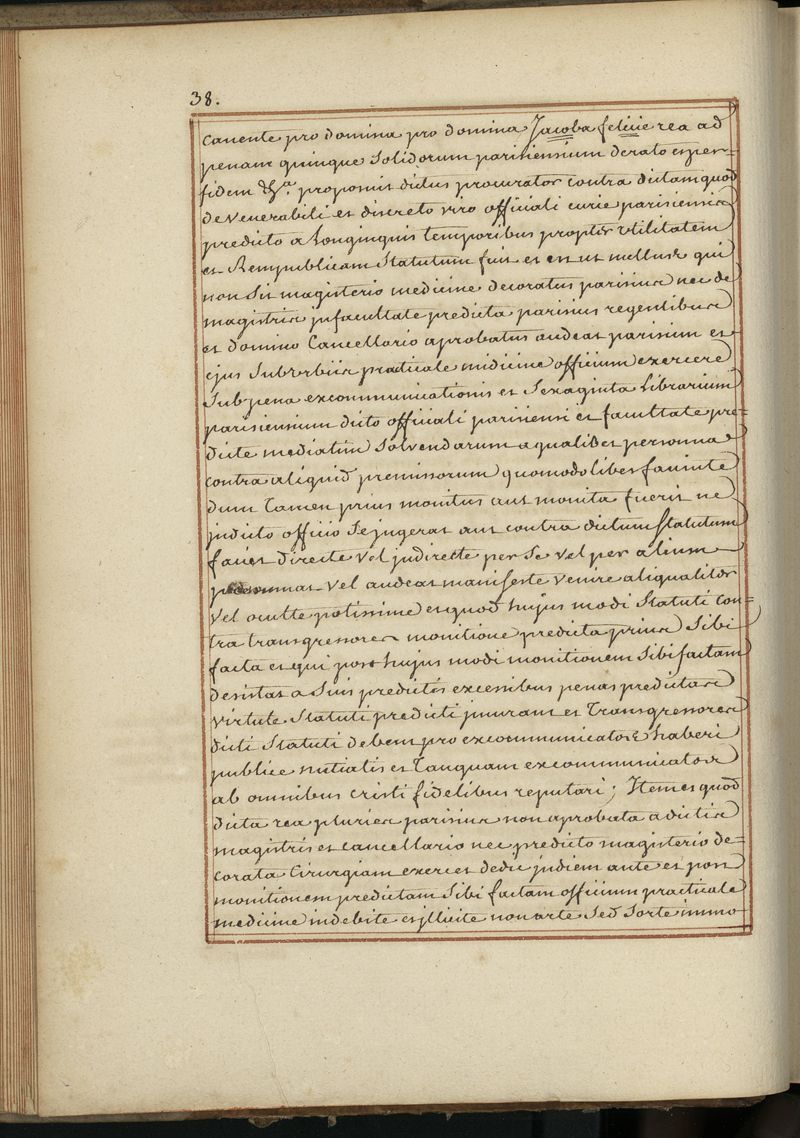 38.
cauente pro domina pro domina Jacoba felicie rea ad
penam quinque Solidorum parisiensium de rato et per=
fidem &ª. proponit dictus procurator contra dictam quod
de venerabili et discreto viro officiali curie parisiensis
predicto a longinquis temporibus propter vtilitatem
et Rempublicam Statutum fuit et est ut nullus qui
non Sit magisterio medicine decoratus parisius nec de
magistris in facultate predicta parisius regentibus
et domino Cancellario aprobatus audeat parisium et
ejus Suburbiis practicale midicine officium exercere
Sub pena excommunicationis et Sexaginta Librarum
parisiensium dicto officiali parisiensi et facultate pre=
dicte mediatim Solvendarum a qualibet personna
contra aliquid premissorum quomodolibet faciente
dum Tamen prius monitus aut monita fuerit ne
in dicto officio Se ingerat aut contra dictum Statutum
faciet directe vel indirecte per Se vel per alium
vel audeat manifeste venire aliqualiter
vel oculte potissime et quod hujus modi Statuti con=
tra transgressores monitione predicta prius Sibi
facta et qui post hujus modi monitionem Sibi factam
desistat a Suis predictis excessibus penas predictas
virtute Statuti predicti incurant et Transgressores
dicti Statuti debent pro excommunicatos haberi
publice nutialis et Tanquam excommunicator
ab omnibus cristi fidelibus reputari; Item et quod
dicta rea pluries parisius non aprobata a dictis
magistris et cancellario nec predicto magisterio de=
corata Cirurgiam exercet dedic judiem ante et post
monitionem predictam Sibi factam officium practicale
medicine indebite et jllicite non arte Sed Sorte immo